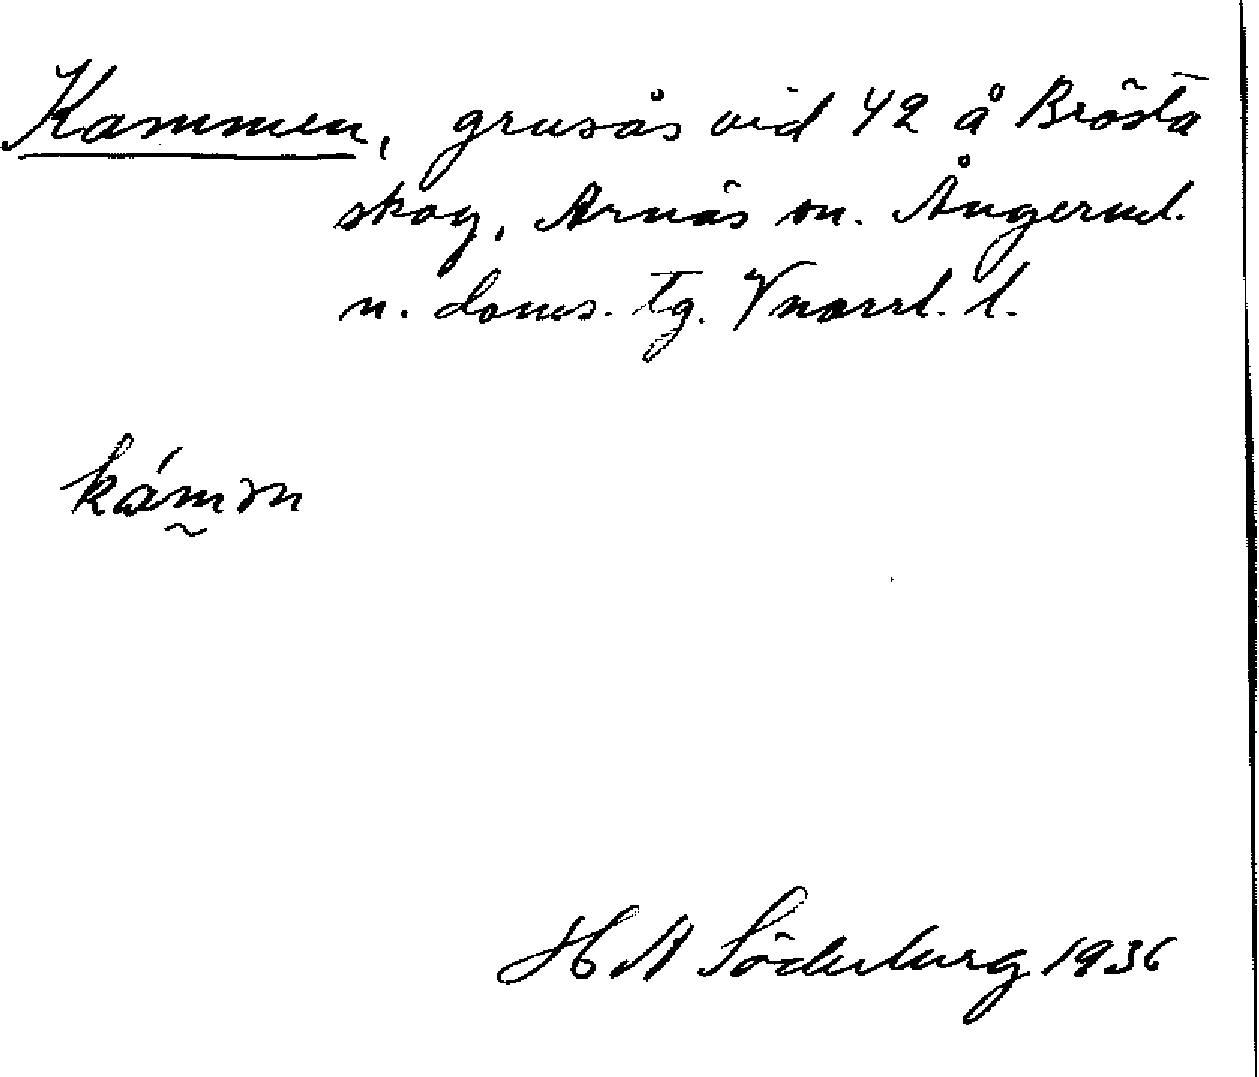 Kammen, grusås vid 42 å Brösta
skog, Arnäs sn. Ångerml.
n. doms. tg. Vnorrl. l.
kámən
H A Söderberg 1936